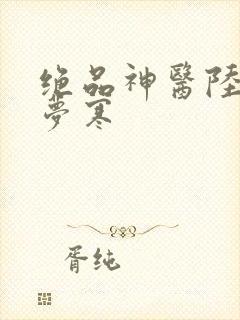 绝品神醫陸
夢寒
胥纯